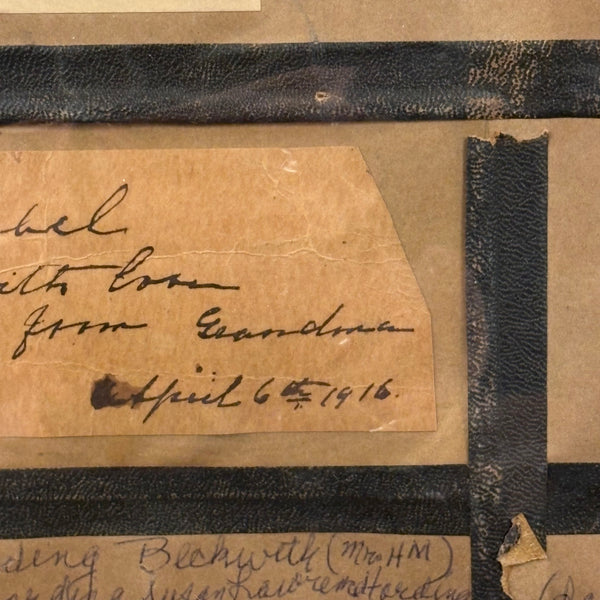 bel
ith love
from Grandma
April 6th 1916.
ding Beckwith (Mrs HM)
arding Susan Lawrence Harding